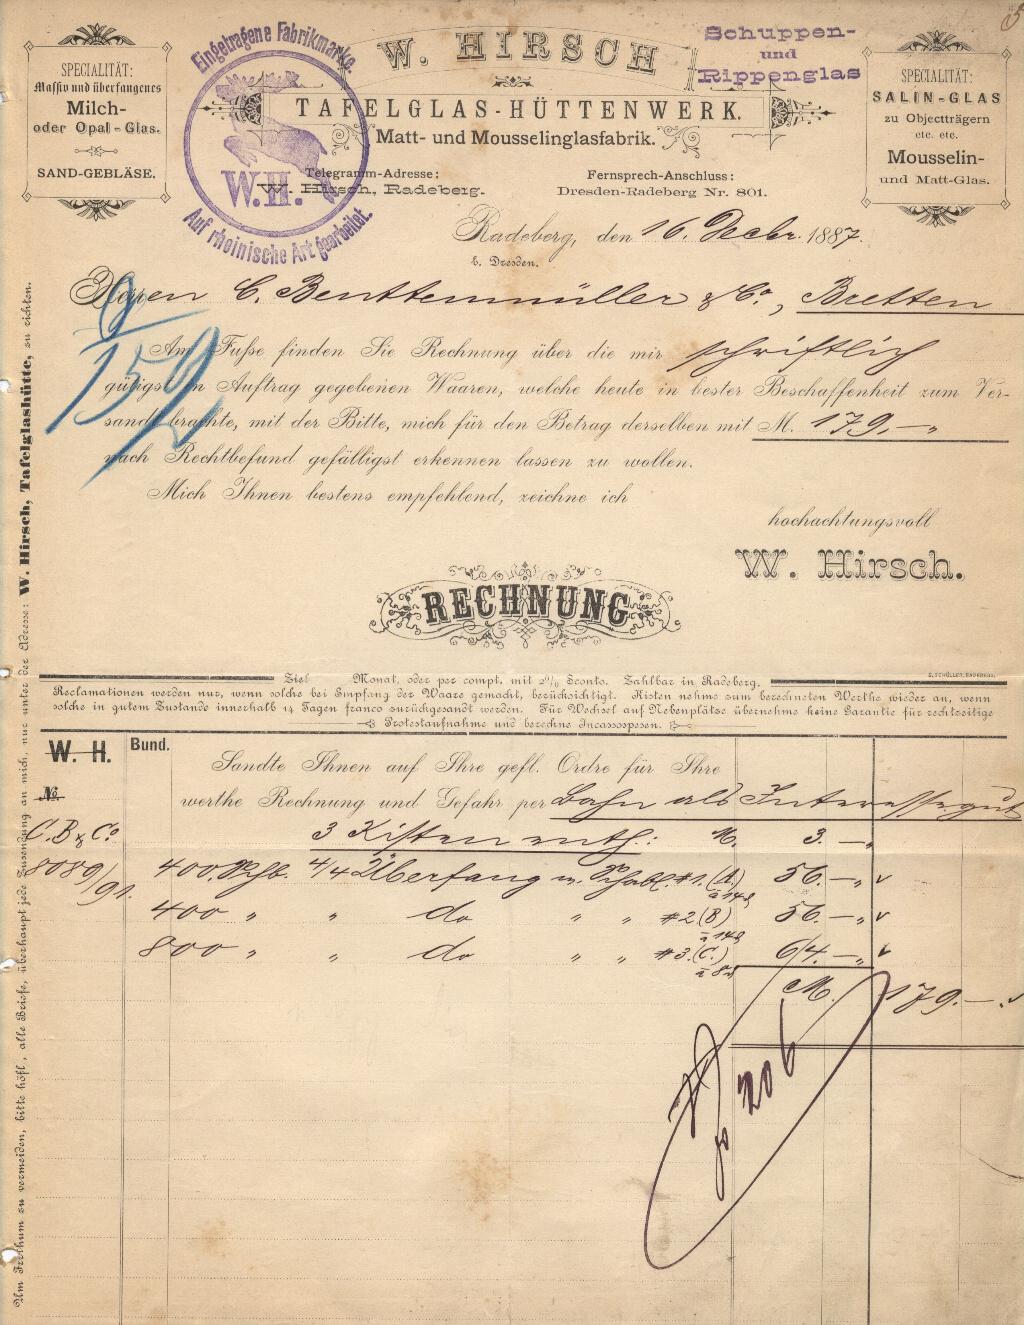 SPECIALITÄT:
Massiv und überfangenes
Milch-
oder Opal-Glas.
SAND-GEBLÄSE.
Eingetragene Fabrikmarke.
W.H.
Auf rheinische Art gearbeitet.
W. HIRSCH
TAFELGLAS-HÜTTENWERK.
Matt- und Mousselinglasfabrik.
Telegramm-Adresse:
W. Hirsch, Radeberg.
Fernsprech-Anschluss:
Dresden-Radeberg Nr. 801.
Schuppen-
und
Rippenglas
SPECIALITÄT:
SALIN-GLAS
zu Objectträgern
etc. etc.
Mousselin-
und Matt-Glas.
Radeberg, den 16. Decbr. 1887.
b. Dresden.
Herren C. Beuttenmüller & Co, Bretten
Am Fuße finden Sie Rechnung über die mir schriftlich
gütigst in Auftrag gegebenen Waaren, welche heute in bester Beschaffenheit zum Ver-
sandt brachte, mit der Bitte, mich für den Betrag derselben mit M. 179.—„
nach Rechtbefund gefälligst erkennen lassen zu wollen.
Mich Ihnen bestens empfehlend, zeichne ich
hochachtungsvoll
W. Hirsch.
RECHNUNG
Ziel Monat, oder per compt. mit 2% Sconto. Zahlbar in Radeberg.
Reclamationen werden nur, wenn solche bei Empfang der Waare gemacht, berücksichtigt. Kisten nehme zum berechneten Werthe wieder an, wenn
solche in gutem Zustande innerhalb 14 Tagen franco zurückgesandt werden. Für Wechsel auf Nebenplätze übernehme keine Garantie für rechtzeitige
Protestaufnahme und berechne Incassospesen.
W. H. Bund.
Sandte Ihnen auf Ihre gefl. Ordre für Ihre
No. werthe Rechnung und Gefahr per Bahn als Interesse gut
C. B & Co 3 Kisten enth.: M. 3.—„
8089/91. 400. Schb. 4/4 Überfang m. #1. (A.) 56.—„
à 14₰
400 „ „ do „ „ #2 (B) 56.—„
à 14₰
800 „ „ do „ „ #3. (C.) 64.—„
à 8₰
M. 179.—„
206
Um Irrthum zu vermeiden, bitte höfl., alle Briefe, überhaupt jede Zusendung an mich, nur unter der Adresse: W. Hirsch, Tafelglashütte, zu richten.